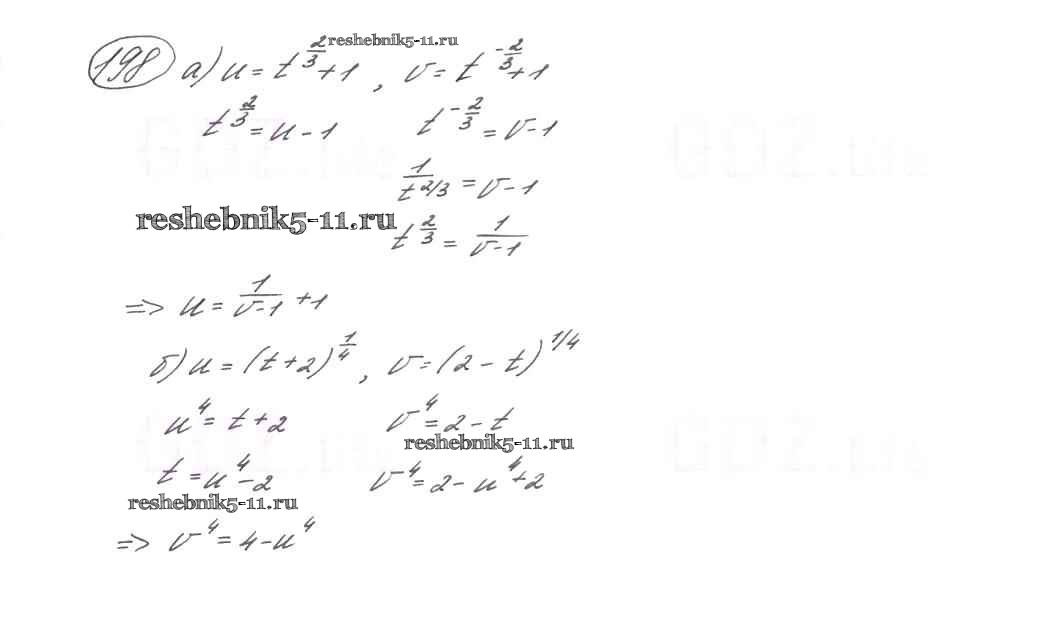 reshebnik5-11.ru
198 а) u = t^(2/3) + 1 , v = t^(-2/3) + 1
t^(2/3) = u - 1    t^(-2/3) = v - 1
1/t^(2/3) = v - 1
reshebnik5-11.ru
t^(2/3) = 1/(v-1)
=> u = 1/(v-1) + 1
б) u = (t+2)^(1/4) , v = (2 - t)^(1/4)
u^4 = t + 2    v^4 = 2 - t
reshebnik5-11.ru
t = u^4 - 2    v^4 = 2 - u^4 + 2
reshebnik5-11.ru
=> v^4 = 4 - u^4